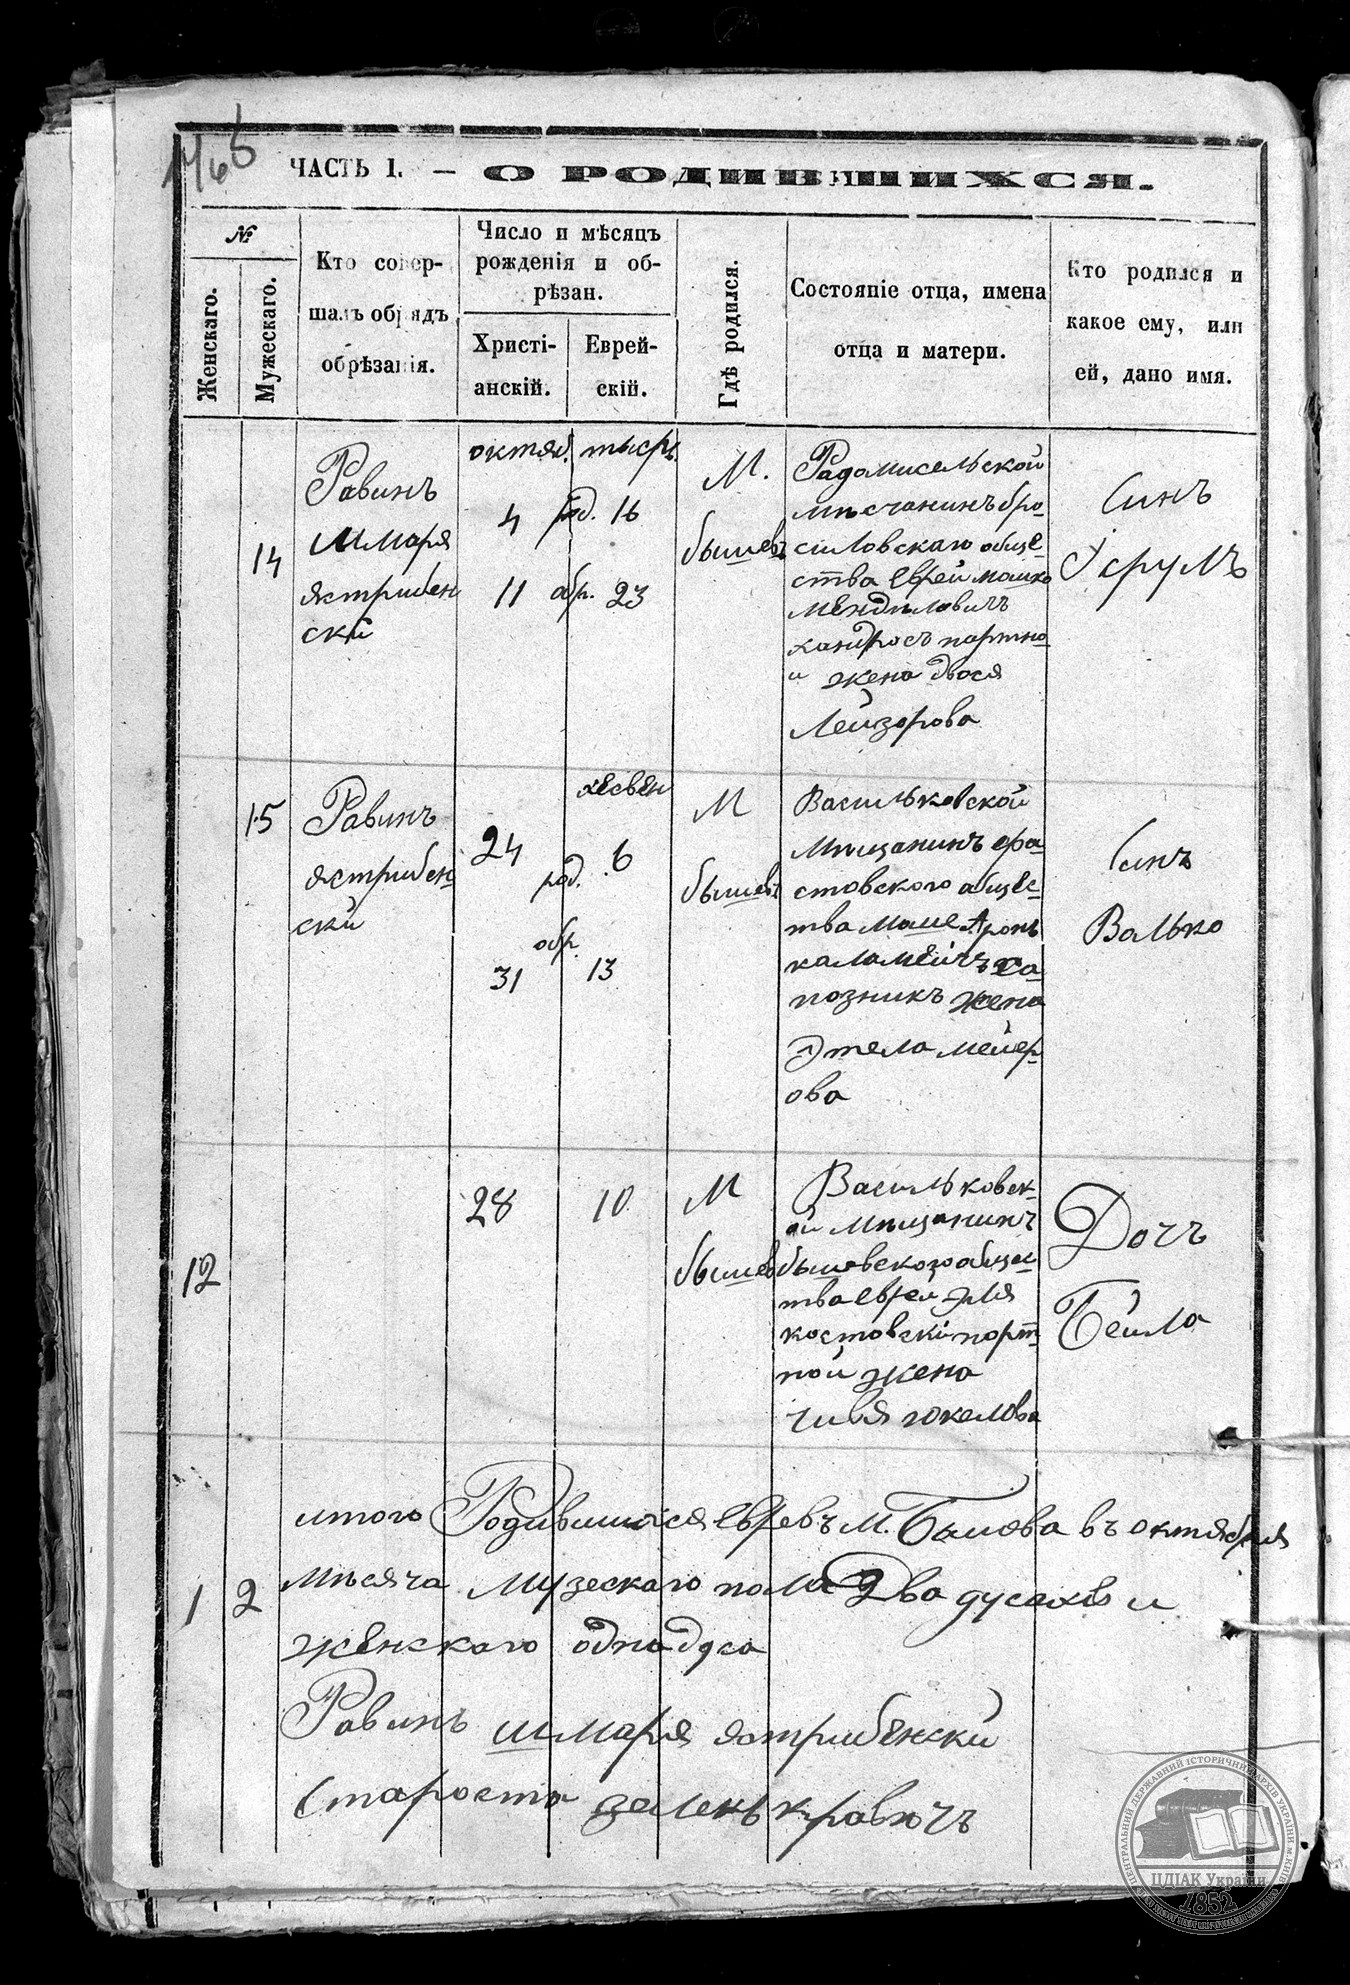 ЧАСТЬ I. — О РОДИВШИХСЯ.
№
Женскаго.
Мужескаго.
Кто совер-
шалъ обрядъ
обрѣзанія.
Число и мѣсяцъ
рожденія и об-
рѣзан.
Христі-
анскій.
Еврей-
скій.
Гдѣ родился.
Состояніе отца, имена
отца и матери.
Кто родился и
какое ему, или
ей, дано имя.
14
Равинъ
Шмаря
Ястрибен
ски
октяб.
4 род.
11 обр.
тысры.
16
23
М.
бышевъ
Радомисельской
мѣсчанинъ бро-
силовскаго обще-
ства Еврей мошко
Мендьловичъ
хандросъ партно
и жена двося
Лейзорова
Синъ
Усрулъ
15
Равинъ
Ястрибен
ски
24
род.
обр.
31
хесвен
6
13
М
бышевъ
Васильковской
мѣщанинъ фа-
стовского общес-
тва моше Аронъ
каламейчъ са-
позникъ жена
Этела мейер-
ова
Синъ
Валько
12
28
10
М
бышевъ
Васильковск-
ой мѣщанинъ
бышевского общес-
тва еврей Эля
костовски порт-
ной жена
Дочъ
Бейла
итого Родившися Евревъ м. Бышева въ октября
1
2
мѣсяча музескаго пола 2 два дусахъ и
женскаго одна дуса
Равинъ шмаря ястрибенски
Староста зелекъ кравечъ
ЦЕНТРАЛЬНИЙ ДЕРЖАВНИЙ ІСТОРИЧНИЙ АРХІВ УКРАЇНИ М. КИЇВ
ЦДІАК України
1852